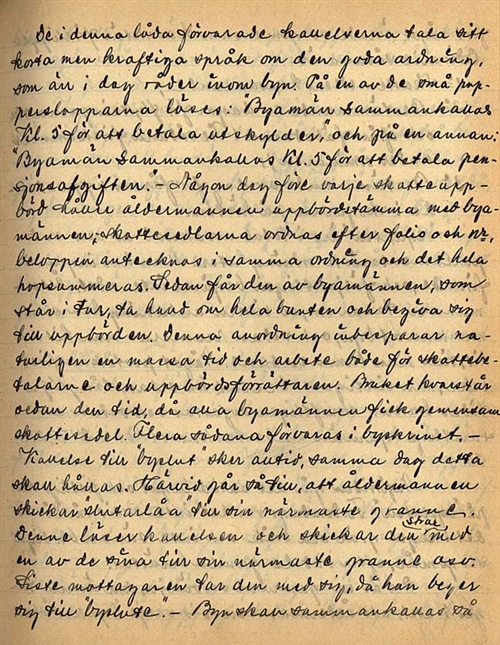 De i denna låda förvarade kallelserna tala sitt
korta men kraftiga språk om den goda ordning,
som än i dag råder inom byn. På en av de små pap-
perslapparna läses: "Byamän sammankallas
Kl. 5 för att betala utskylder," och på en annan:
"Byamän sammankallas Kl. 5 för att betala pen-
sjonsafgiften." – Någon dag före varje skatteupp-
börd håller åldermannen uppbördstämma med bya-
männen; skattesedlarna ordnas efter folio och nr,
beloppen antecknas i samma ordning och det hela
hopsummeras. Sedan får den av byamännen, som
står i tur, ta hand om hela bunten och begiva sig
till uppbörden. Denna anordning inbesparar na-
turligen en massa tid och arbete både för skattebe-
talarne och uppbördsförrättaren. Bruket kvarstår
sedan den tid, då alla byamännen fick gemensam
skattesedel. Flera sådana förvaras i byskrinet. –
Kallelse till "byslut" sker alltid, samma dag detta
skall hållas. Härvid går så till, att åldermannen
skickar "slutarlåa" till sin närmaste granne.
Denne läser kallelsen och skickar den strax med
en av de sina till sin närmaste granne osv.
Siste mottagaren tar den med sig, då han beger
sig till "byslute". – Byn skall sammankallas så